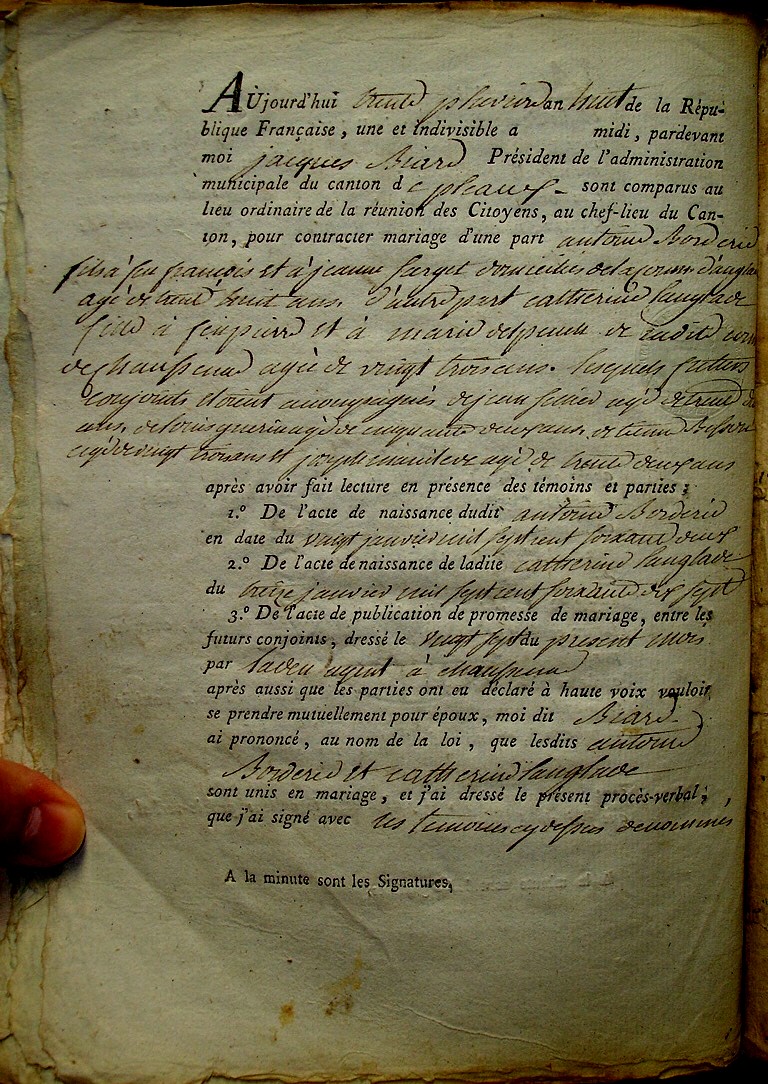 AUjourd'hui trente pluviose an huit de la Répu-
blique Française, une et indivisible a midi, pardevant
moi jacques Biard Président de l'administration
municipale du canton de pleaux - sont comparus au
lieu ordinaire de la réunion des Citoyens, au chef-lieu du Can-
ton, pour contracter mariage d'une part antoine Borderie
fils à feu françois et à jeanne sarget domiciliés de la comm d'angla
agé de trente huit ans d'autre part catherine Langlade
fille à feu pierre et à marie de ladite
de chaussenac agée de vingt trois ans. lesquels futurs
conjoints étoient acompagnés de jean agé de trente
ans, de louis guerin agé de cinquante deux ans, etienne Besson
agé de vingt trois ans et joseph agé de trente deux ans
après avoir fait lecture en présence des témoins et parties;
1.º De l'acte de naissance dudit antoine Borderie
en date du vingt janvier mil sept cent soixante deux
2.º De l'acte de naissance de ladite catherine Langlade
du treize janvier mil sept cent soixante dix sept
3.º De l'acte de publication de promesse de mariage, entre les
futurs conjoints, dressé le vingt sept du present mois
par agent à chaussenac
après aussi que les parties ont eu déclaré à haute voix vouloir
se prendre mutuellement pour époux, moi dit Biard
ai prononcé, au nom de la loi, que lesdits antoine
Borderie et catherine Langlade
sont unis en mariage, et j'ai dressé le présent procès-verbal;
que j'ai signé avec les temoins cy dessus denommés
A la minute sont les Signatures,